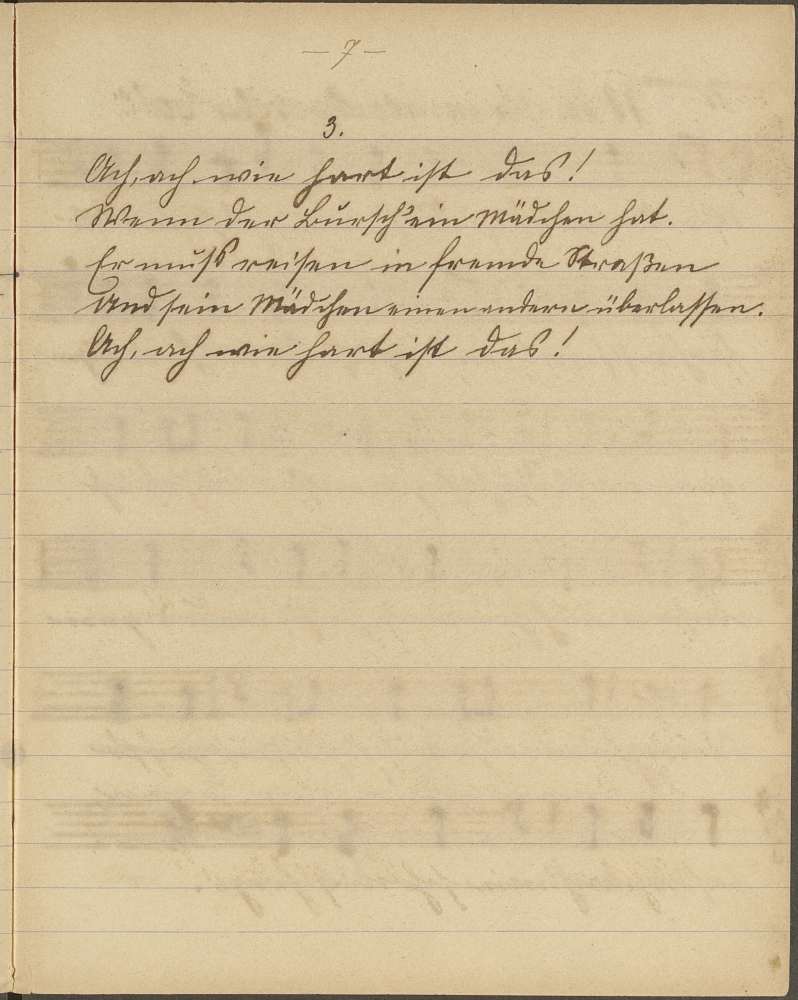 — 7 —
3.
Ach, ach wie hart ist das!
Wenn der Bursch' ein Mädchen hat.
Er muß reisen in fremde Straßen
Und sein Mädchen einen andern überlassen.
Ach, ach wie hart ist das!